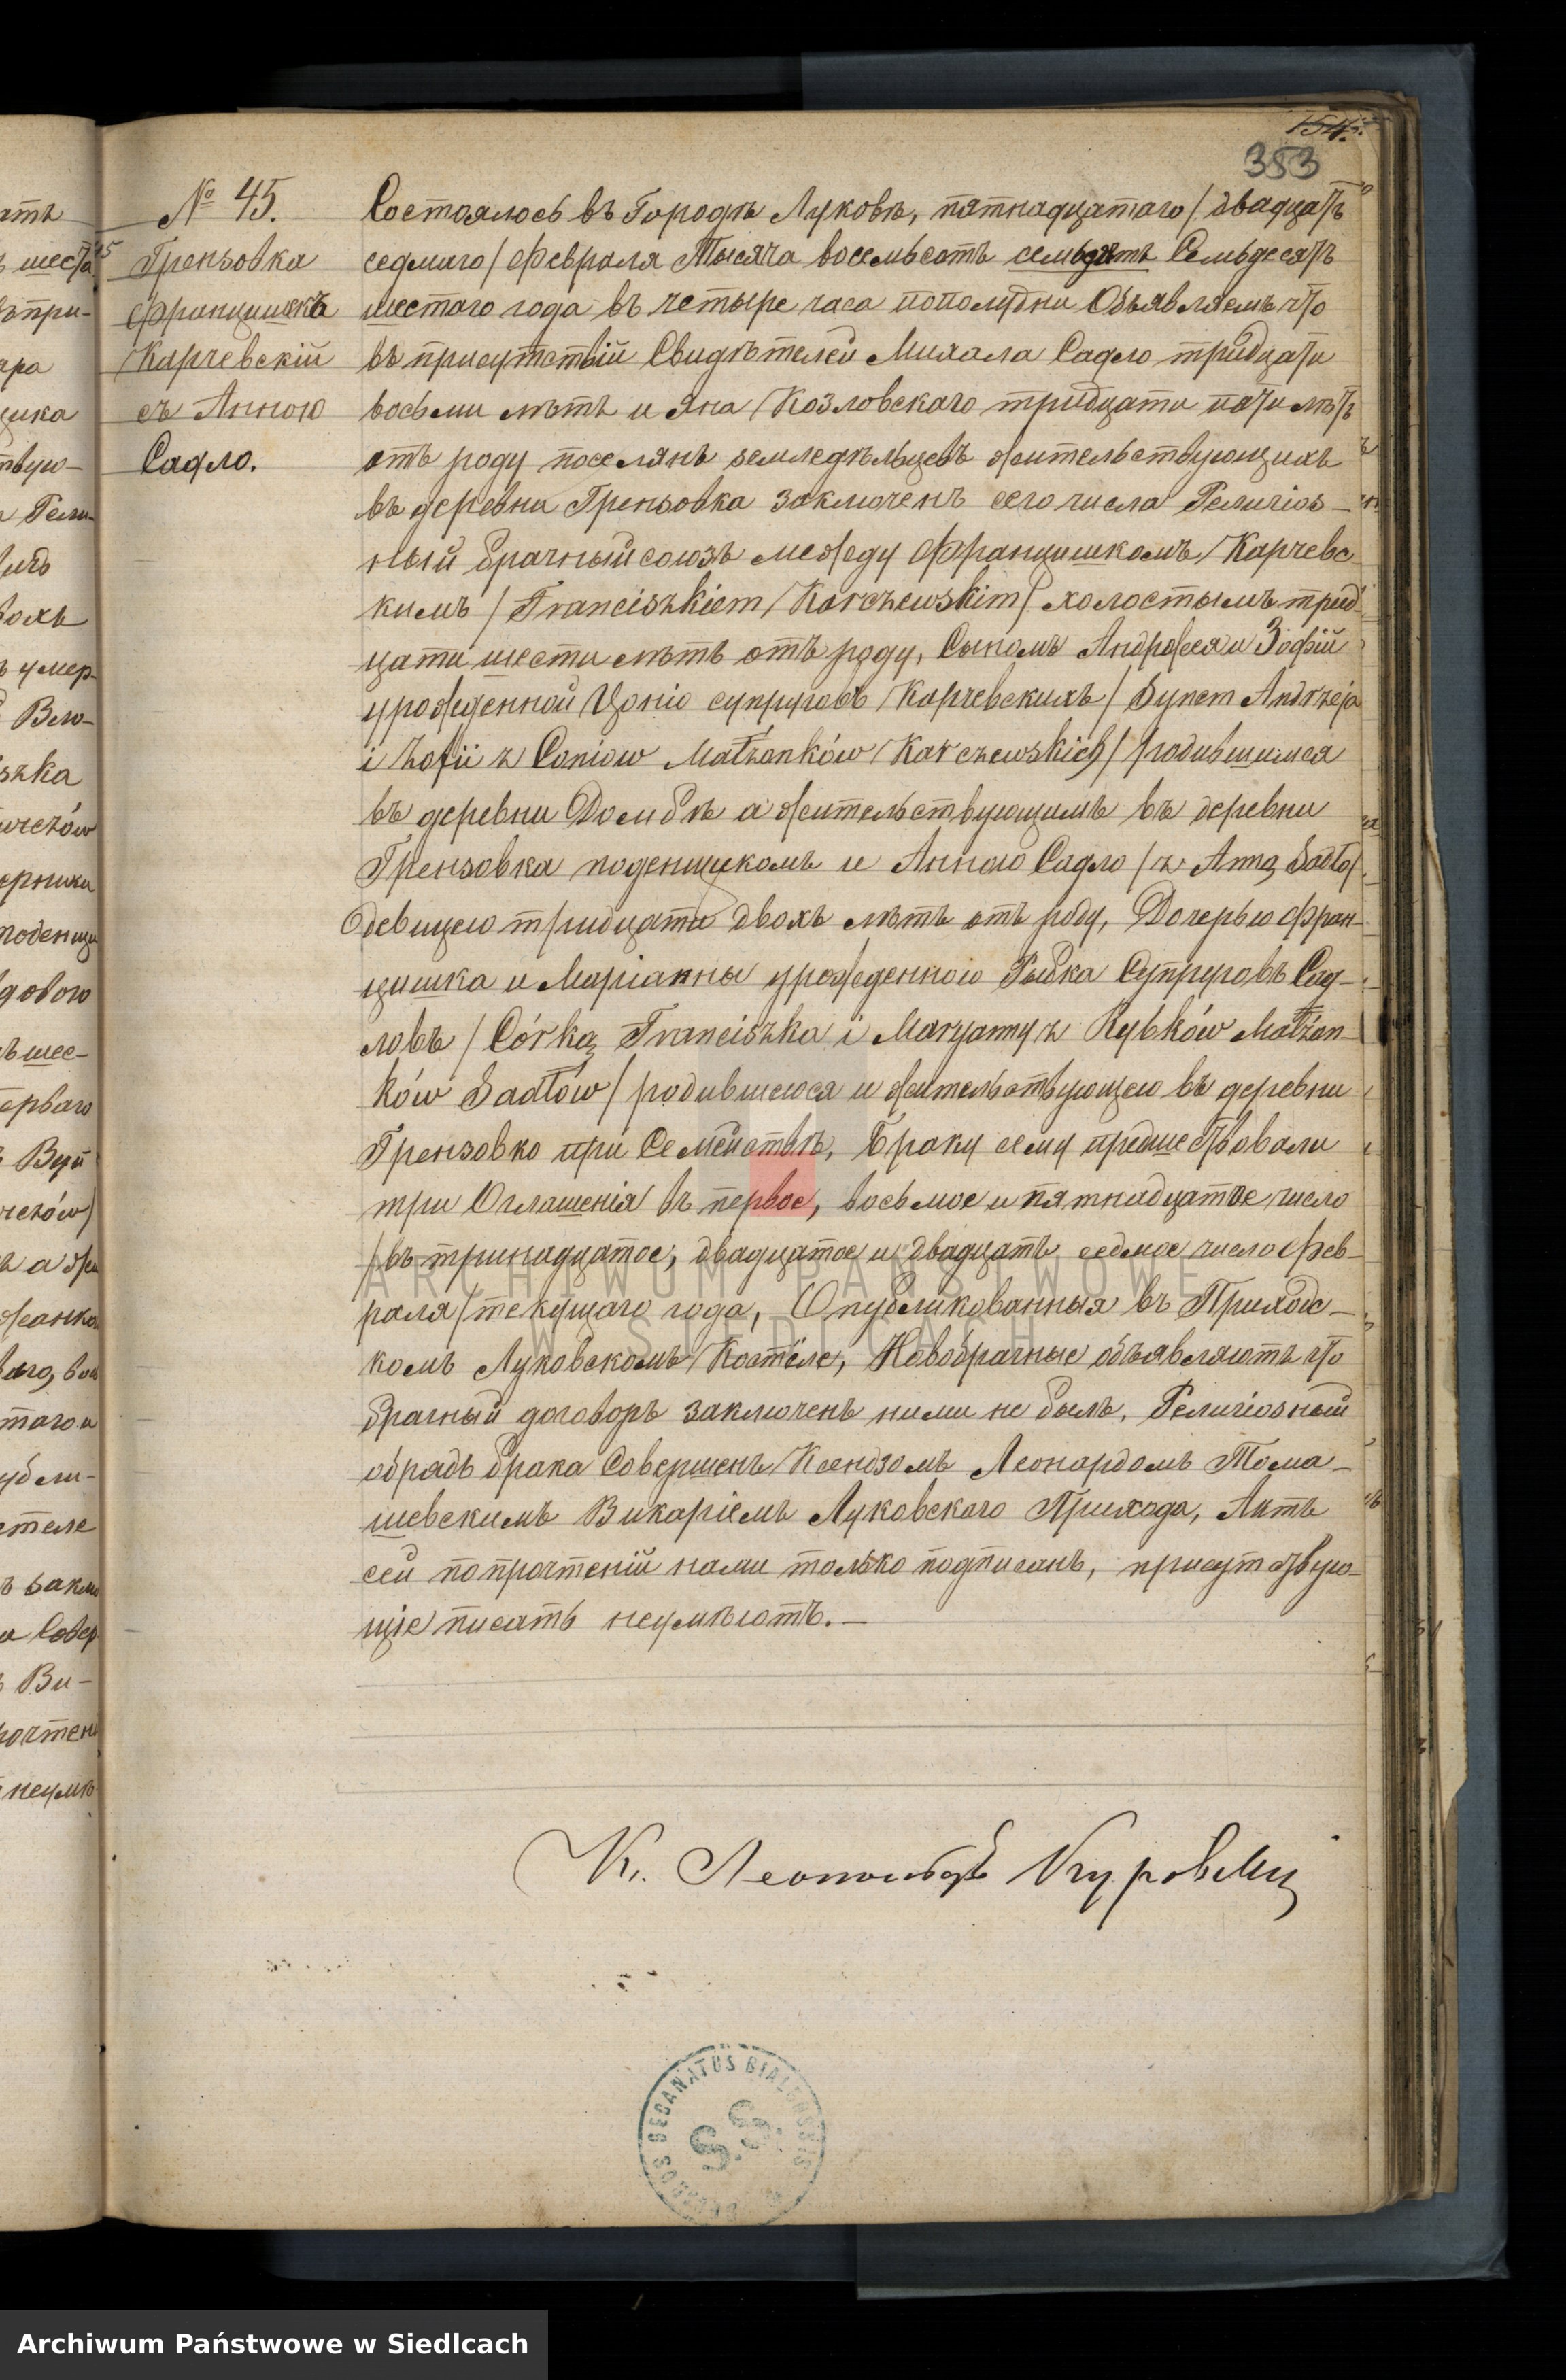 154.
353
№ 45.
Греньовка
Францишекъ
Карчевскій
съ Анною
Садло.
Состоялось въ Городѣ Луковѣ, пятнадцатаго / двадцать
седмаго / Февраля Тысяча восемьсотъ семьдять Семьдесятъ
шестаго года въ четыре часа пополудни Объявляемъ что
въ присутствій Свидѣтелей Михала Садло тридцати
восьми лѣтъ и Яна Козловскаго тридцати пати лѣтъ
отъ роду поселянъ земледѣльцевъ жительствующихъ
въ деревни Греньовка заключенъ сего числа Религіоз-
ный брачный союзъ между Францишкомъ Карчевс
кимъ / Franciszkiem Karczewskim / холостымъ трид
цати шести лѣтъ отъ роду, Сыномъ Андржея и Зофій
урожденной Цоніо супруговъ Карчевскихъ / Synem Andrzeja
i Zofii z Coniow Małżonków Karczewskich / родившимся
въ деревни Домбѣ а жительствующимъ въ деревни
Грензовка поденщикомъ и Анною Садло / z Anną Sadło /
девицею тридцати двохъ лѣтъ отъ роду, Дочерью Фран-
цишка и Маріанны урожденною Рыбка Супруговъ Сад-
ловъ / Córką Franciszka i Maryanny z Rybków Małżon-
ków Sadłów / родившеюся и жительствующею въ деревни
Грензовко при Семействѣ, Браку сему предшествовали
три Оглашенія въ первое, восьмое и пятнадцатое число
/ въ тринадцатое, двадцатое и двадцать седмое число Фев-
раля / текущаго года, Опубликованныя въ Приходс-
комъ Луковскомъ Костеле, Новобрачные объявляютъ что
брачный договоръ заключенъ ними не былъ, Религіозный
обрядъ брака Совершенъ Ксендзомъ Леонардомъ Тома-
шевскимъ Викаріемъ Луковскаго Прихода, Актъ
сей по прочтеній нами только подписанъ, присутствую-
щіе писать неумѣютъ.—
К. Леопольдъ
ARCHIWUM PAŃSTWOWE
W SIEDLCACH
DECANATUS BIAL
S.S.
Archiwum Państwowe w Siedlcach